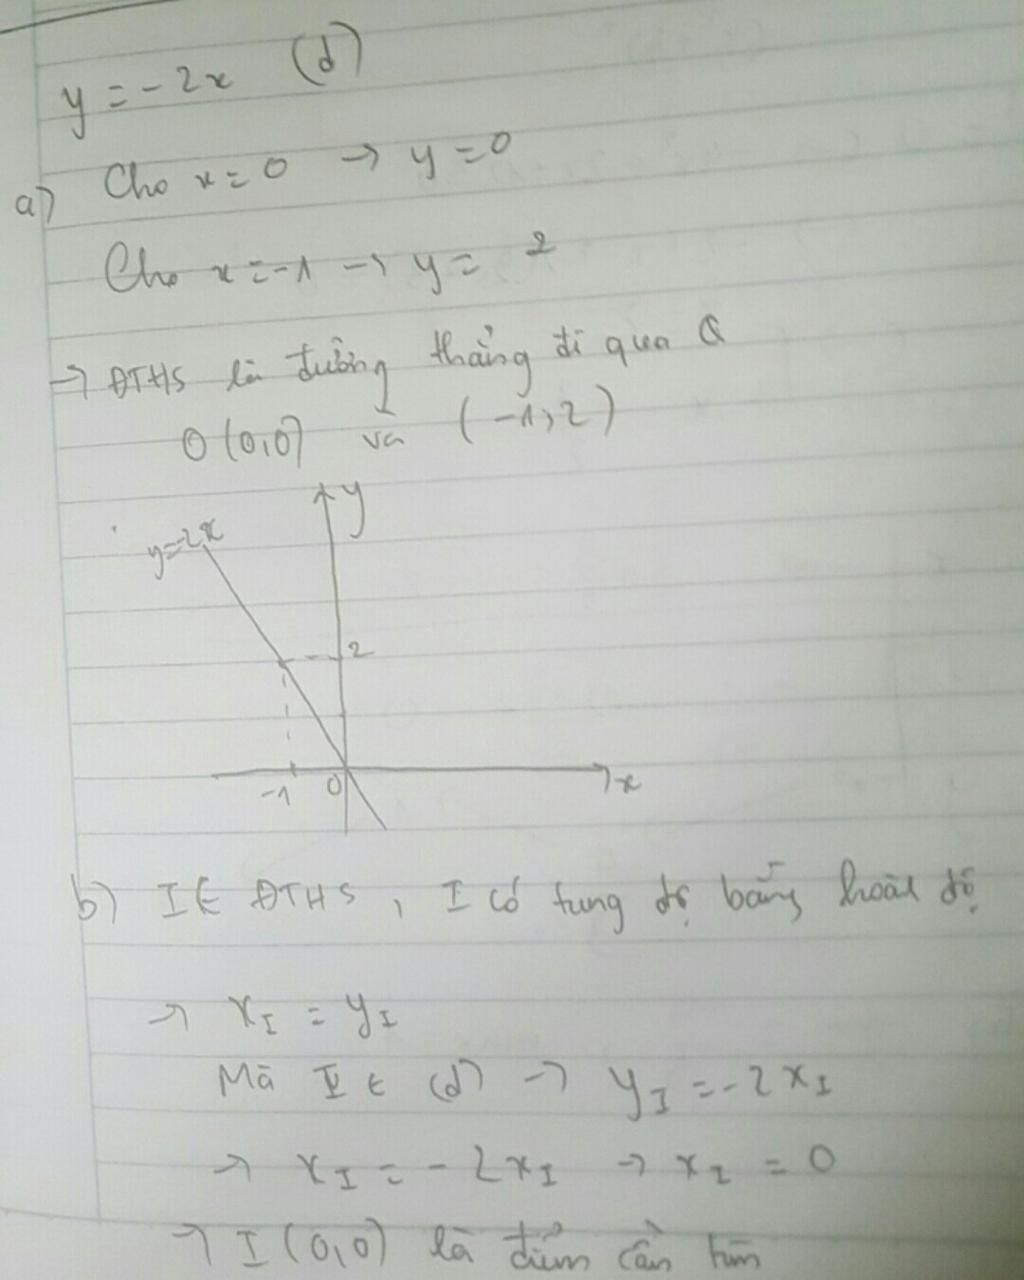 y = -2x (d)
a) Cho x = 0 → y = 0
Cho x = -1 → y = 2
→ ĐTHS là đường thẳng đi qua
O (0,0) và (-1,2)
y
y=-2x
2
-1 0 x
b) I ∈ ĐTHS, I có tung độ bằng hoành độ
→ x_I = y_I
Mà I ∈ (d) → y_I = -2x_I
→ x_I = -2x_I → x_I = 0
→ I (0,0) là điểm cần tìm